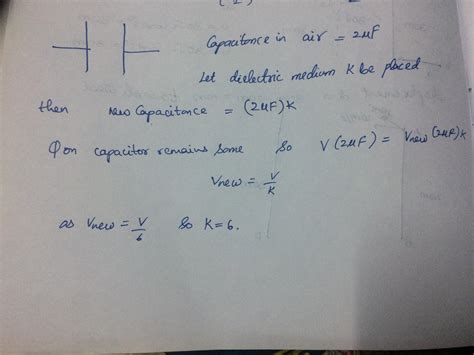 (2)
Capacitance in air = 2μF
Let dielectric medium K be placed
then new Capacitance = (2μF)K
Q on capacitor remains same so V(2μF) = Vnew(2μF)K
Vnew = V/K
as Vnew = V/6 So K=6.